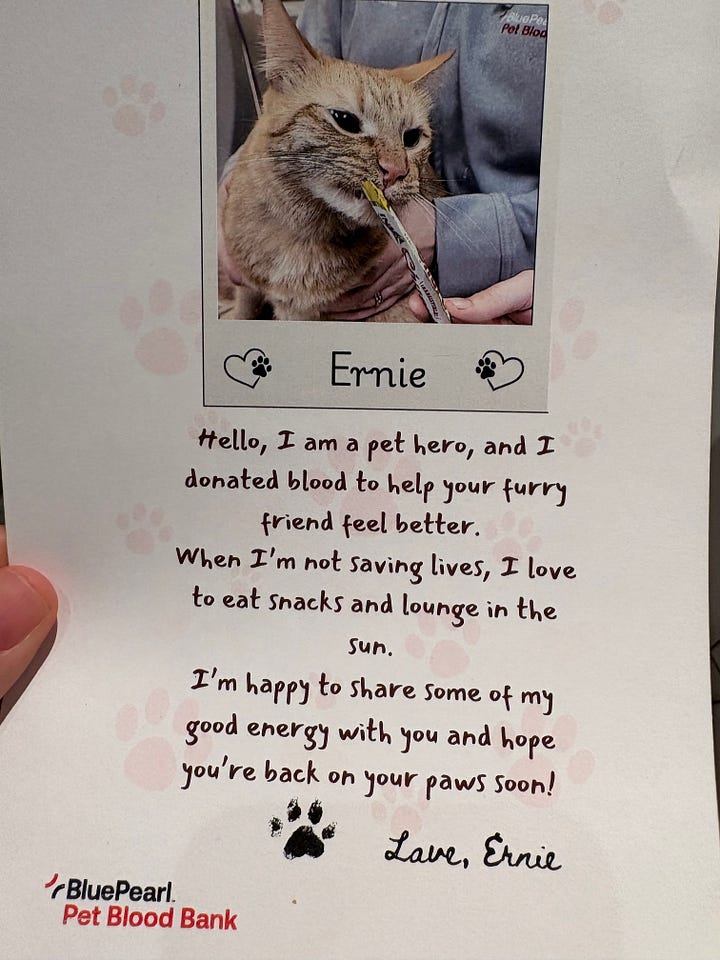 BluePe
Pet Blood
Ernie
Hello, I am a pet hero, and I
donated blood to help your furry
friend feel better.
When I'm not saving lives, I love
to eat snacks and lounge in the
sun.
I'm happy to share some of my
good energy with you and hope
you're back on your paws soon!
Love, Ernie
BluePearl
Pet Blood Bank